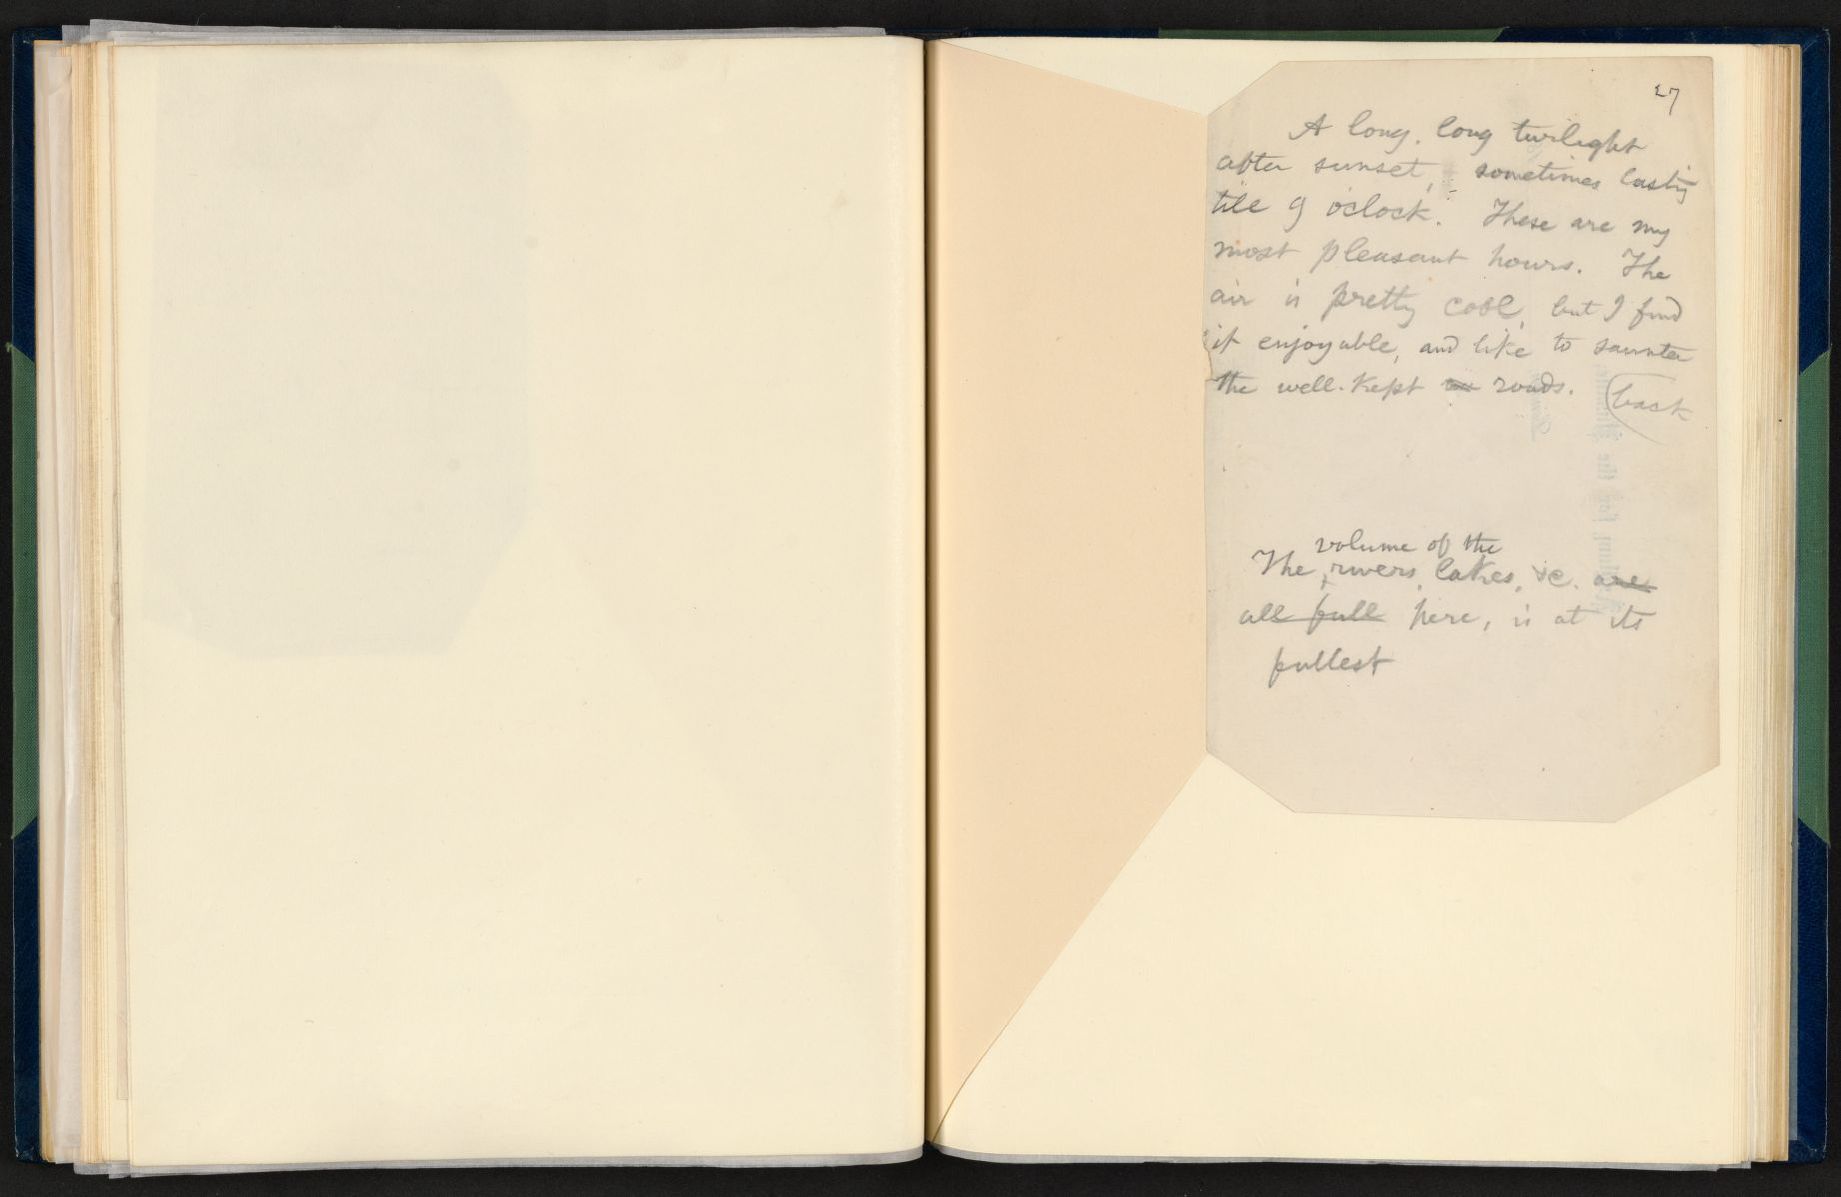 27
A long, long twilight
after sunset, – sometimes lasting
till 9 o'clock. These are my
most pleasant hours. The
air is pretty cool, but I find
it enjoyable, and like to saunter
the well-kept roads. (back
volume of the
The rivers, lakes, &c. are
all full here, is at its
fullest